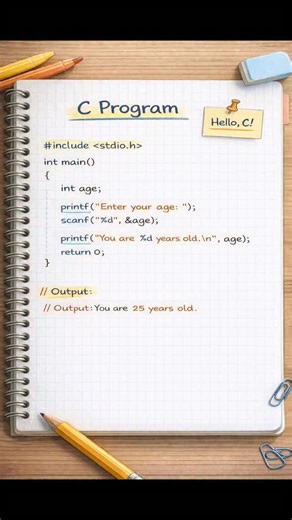 C Program
Hello, C!
#include <stdio.h>
int main()
{
int age;
printf("Enter your age: ");
scanf("%d", &age);
printf("You are %d years old.\n", age);
return 0;
}
// Output:
// Output: You are 25 years old.